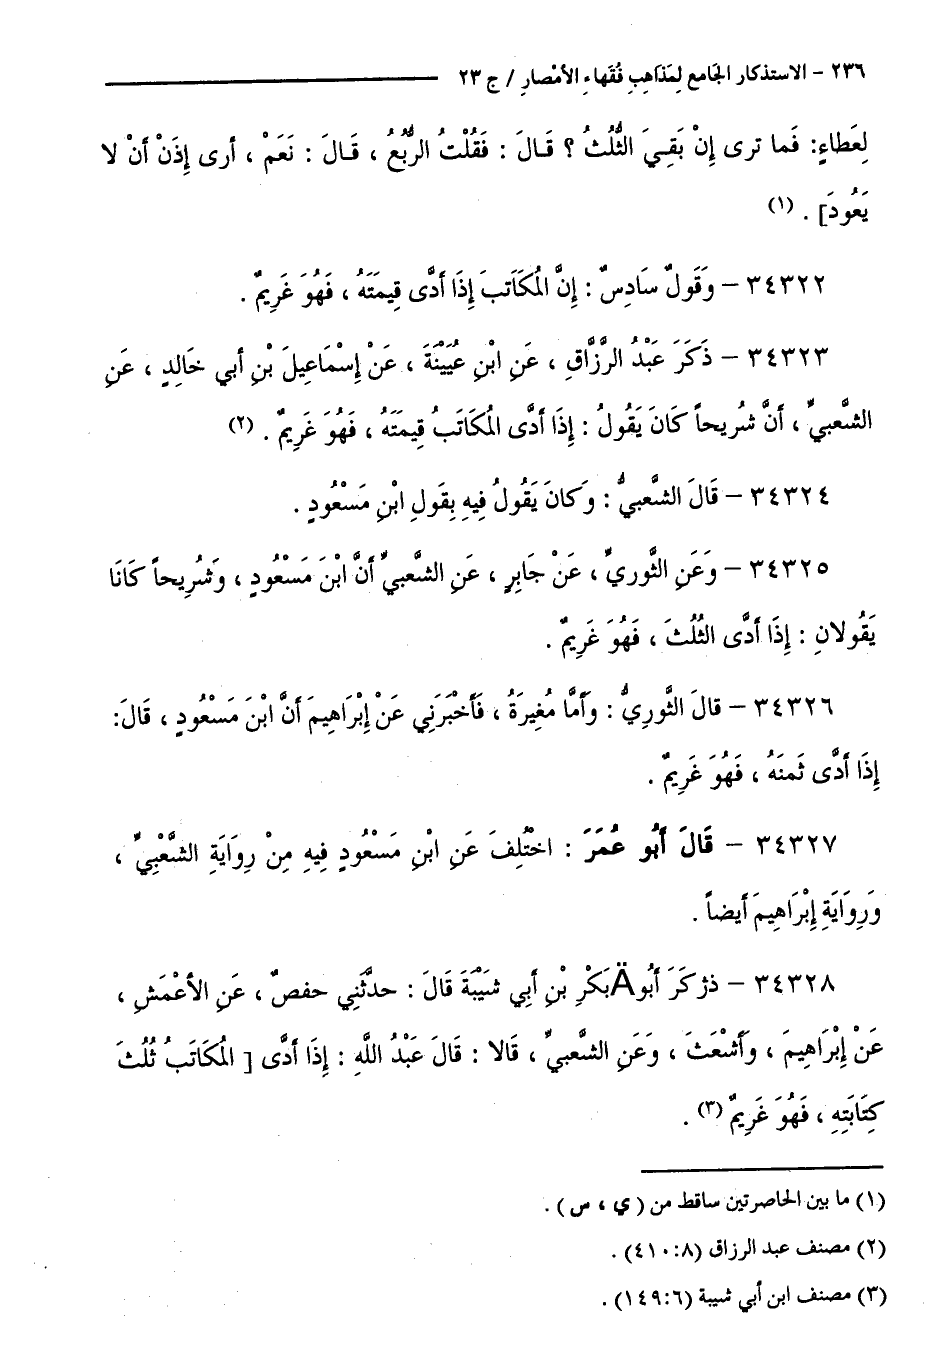 ٢٣٦ - الاستذكار الجَامع لِمَذاهِبِ فُقَهاءِ الأمْصارِ / ج ٢٣
لِعَطاءٍ: فَما ترى إِنْ بَقِيَ الثُّلُثُ ؟ قَالَ : فَقُلْتُ الرُّبُعُ ، قَالَ : نَعَمْ ، أرى إِذَنْ أنْ لا
يَعُودَ] . (١)
٣٤٣٢٢ - وَقَولٌ سَادِسٌ : إِنَّ المُكَاتَبَ إِذَا أدَّى قِيمَتَهُ ، فَهُوَ غَرِيمٌ .
٣٤٣٢٣ - ذَكَرَ عَبْدُ الرَّزَّاقِ ، عَنِ ابْنِ عُيَيْنَةَ ، عَنْ إِسْمَاعِيلَ بْنِ أبي خَالِدٍ ، عَنِ
الشَّعبيِّ ، أَنَّ شُرِيحاً كَانَ يَقُولُ : إِذَا أَدَّى المُكَاتَبُ قِيمَتَهُ ، فَهُوَ غَرِيمٌ . (٢)
٣٤٣٢٤ - قَالَ الشَّعبيُّ : وَكانَ يَقُولُ فِيهِ بِقَولِ ابْنِ مَسْعُودٍ .
٣٤٣٢٥ - وَعَنِ الثَّوريِّ ، عَنْ جَابِرٍ ، عَنِ الشَّعبيِّ أَنَّ ابْنَ مَسْعُودٍ ، وَشُرِيحاً كَانَا
يَقُولانِ : إِذَا أَدَّى الثُلُثَ ، فَهُوَ غَرِيمٌ .
٣٤٣٢٦ - قالَ الثَّورِيُّ : وأَمَّا مُغِيرَةُ ، فَأَخْبَرَنِي عَنْ إِبْرَاهِيمَ أَنَّ ابْنَ مَسْعُودٍ ، قَالَ:
إِذَا أدَّى ثَمنَهُ ، فَهُوَ غَرِيمٌ .
٣٤٣٢٧ - قَالَ أَبُو عُمَرَ : اخْتُلِفَ عَنِ ابْنِ مَسْعُودٍ فِيهِ مِنْ رِوَايَةِ الشَّعْبِيِّ ،
وَرِوَايَةِ إِبْرَاهِيمَ أيضاً .
٣٤٣٢٨ - ذژكَرَ أبُوÄبَكْرِ بْنِ أبِي شَيْبَةَ قَالَ : حدَّثَنِي حفصٌ ، عَنِ الأعْمَشِ ،
عَنْ إِبْرَاهِيمَ ، وأَشْعَثَ ، وَعَنِ الشَّعبيِّ ، قَالا : قَالَ عَبْدُ اللَّهِ : إِذَا أدَّى [ المُكَاتَبُ ثُلُثَ
كِتَابَتِهِ ، فَهُوَ غَرِيمٌ (٣) .
(١) ما بين الحاصرتين ساقط من ( ي ، س ) .
(٢) مصنف عبد الرزاق (٤١٠:٨) .
(٣) مصنف ابن أبي شيبة (١٤٩:٦) .